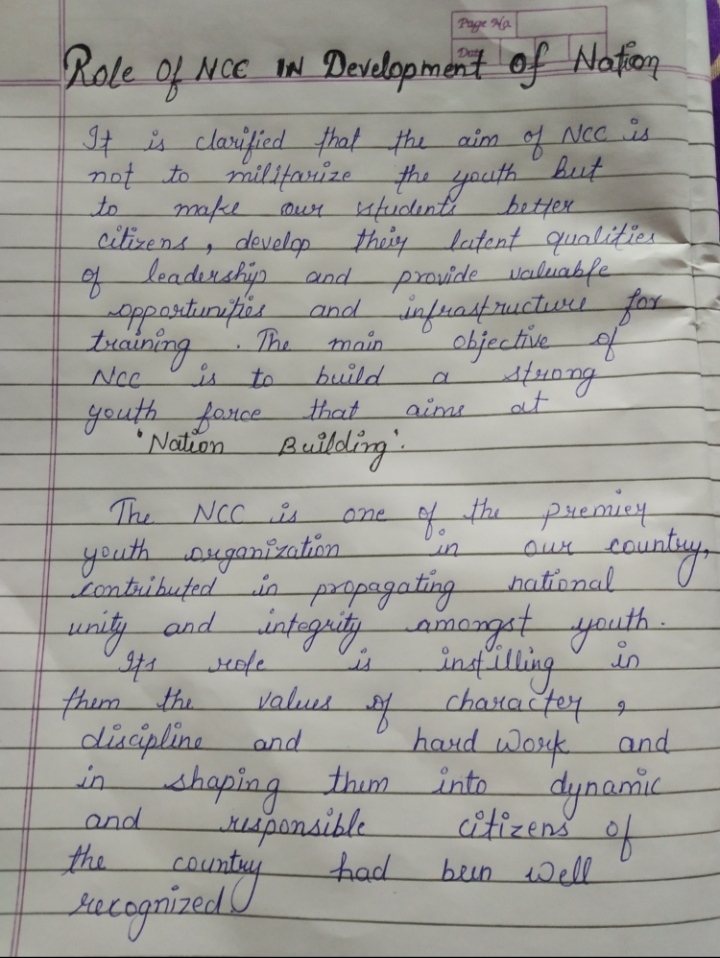 Page No.
Date
Role Of NCC IN Development of Nation
It is clarified that the aim of NCC is
not to militarize the youth but
to make our students better
citizens, develop their latent qualities
of leadership and provide valuable
opportunities and infrastructure for
training. The main objective of
NCC is to build a strong
youth force that aims at
'Nation Building'.
The NCC is one of the premier
youth organization in our country,
contributed in propagating national
unity and integrity amongst youth.
Its role is instilling in
them the values of character,
discipline and hard work and
in shaping them into dynamic
and responsible citizens of
the country had been well
recognized.